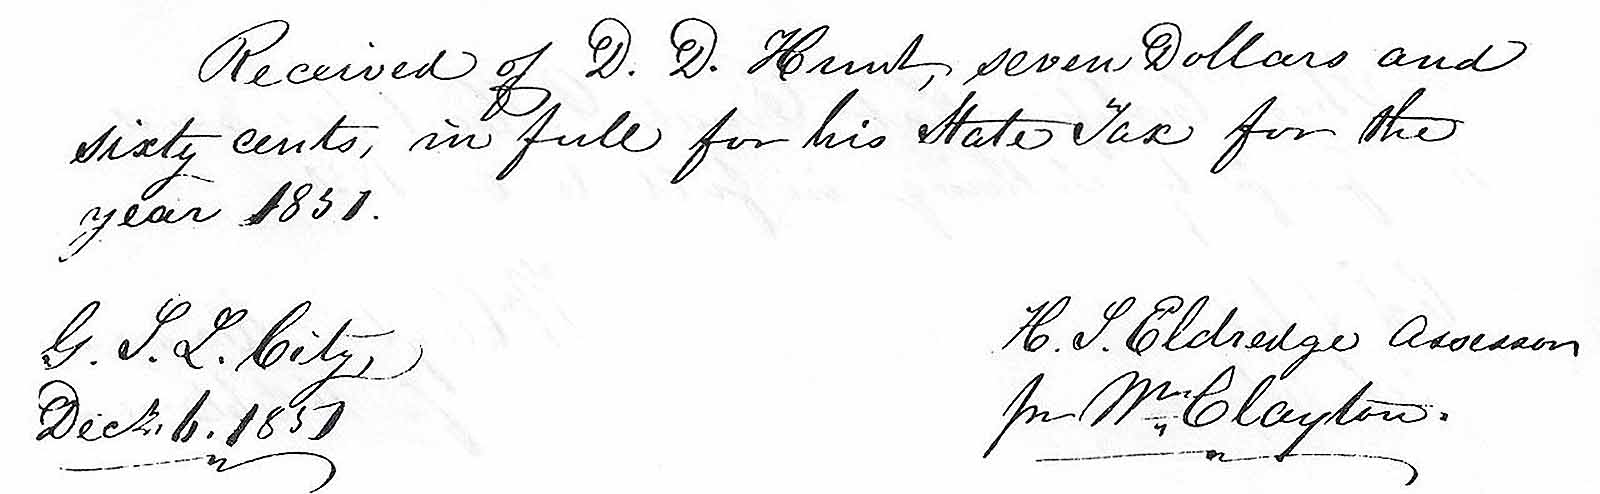 Received of D. D. Hunt, seven Dollars and
sixty cents, in full for his State Tax for the
year 1851.
G. S. L. City,
Decr. 6. 1851
H. S. Eldredge Assessor
pr Wm Clayton.